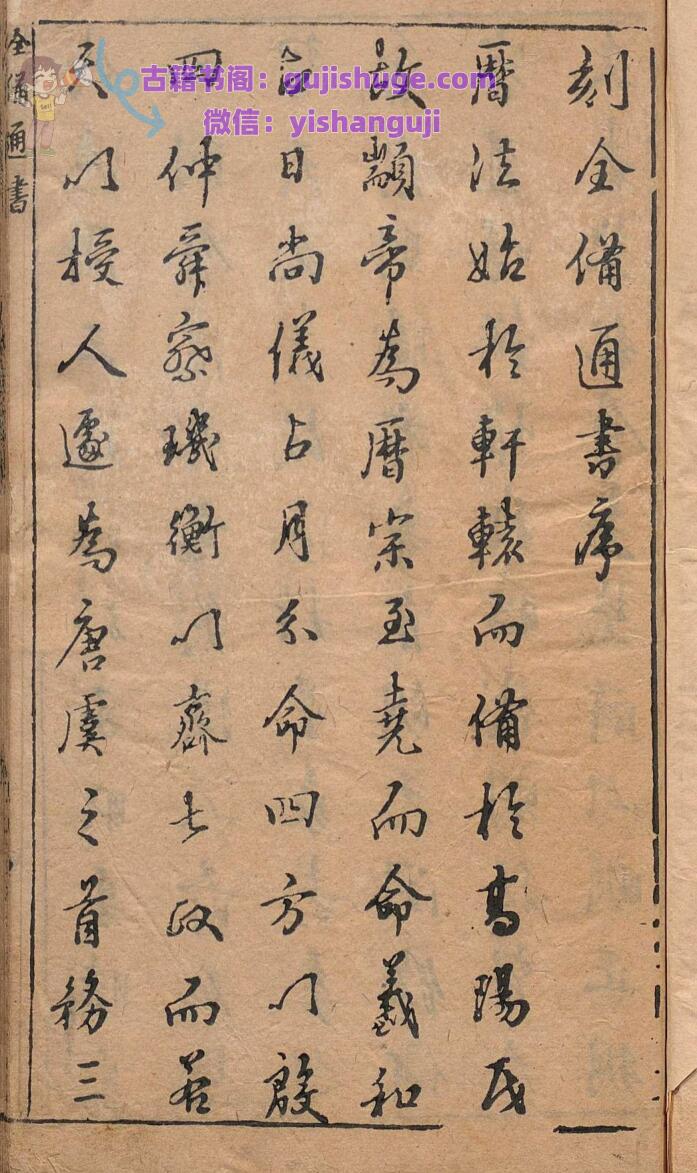 刻全備通書序
曆法始於軒轅而備於高陽氏
故顓帝為曆宗至堯而命羲和
占日尚儀占月分命四方以殷
四仲舜察璣衡以齊七政而若
天以授人遂為唐虞之首務三
全備通書
古籍书阁：gujishuge.com
微信：yishanguji